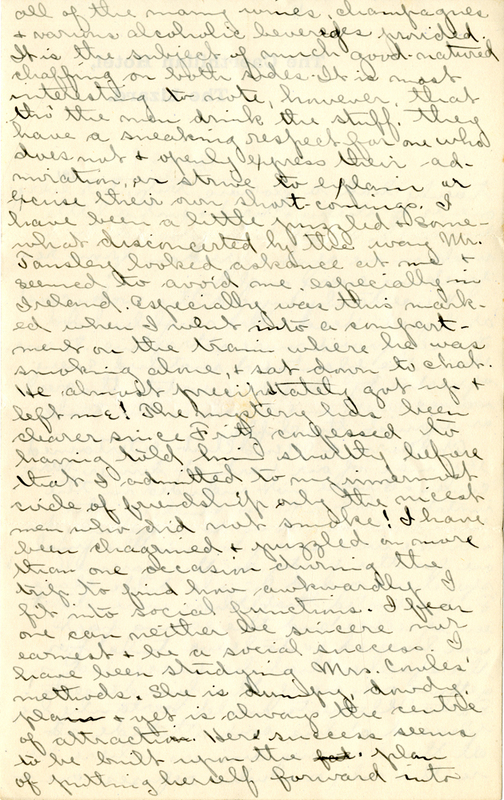 all of the many wines, champagnes
& various alcoholic beverages provided.
It is the subject of much good natured
chaffing on both sides. It is most
interesting to note, however, that
tho' the men drink the stuff, they
have a sneaking respect for one who
does not & openly express their ad-
miration, or strive to explain or
excuse their own short-comings. I
have been a little puzzled & some-
what disconcerted by the way Mr.
Tansley looked askance at me &
seemed to avoid me, especially in
Ireland. Especially was this mark-
ed when I went into a compart-
ment on the train where he was
smoking alone, & sat down to chat.
He almost precipitately got up &
left me! The mystery has been
clearer since Fritz confessed to
having told him shortly before
that I admitted to my innermost
circle of friendship only the nicest
men who did not smoke! I have
been chagrined & puzzled on more
than one occasion during the
trip to find how awkwardly I
fit into social functions. I fear
one can neither be sincere nor
earnest & be a social success. I
have been studying Mrs. Cowles'
methods. She is dumpy, dowdy,
plain & yet is always the centre
of attraction. Her success seems
to be built upon the plan
of putting herself forward into